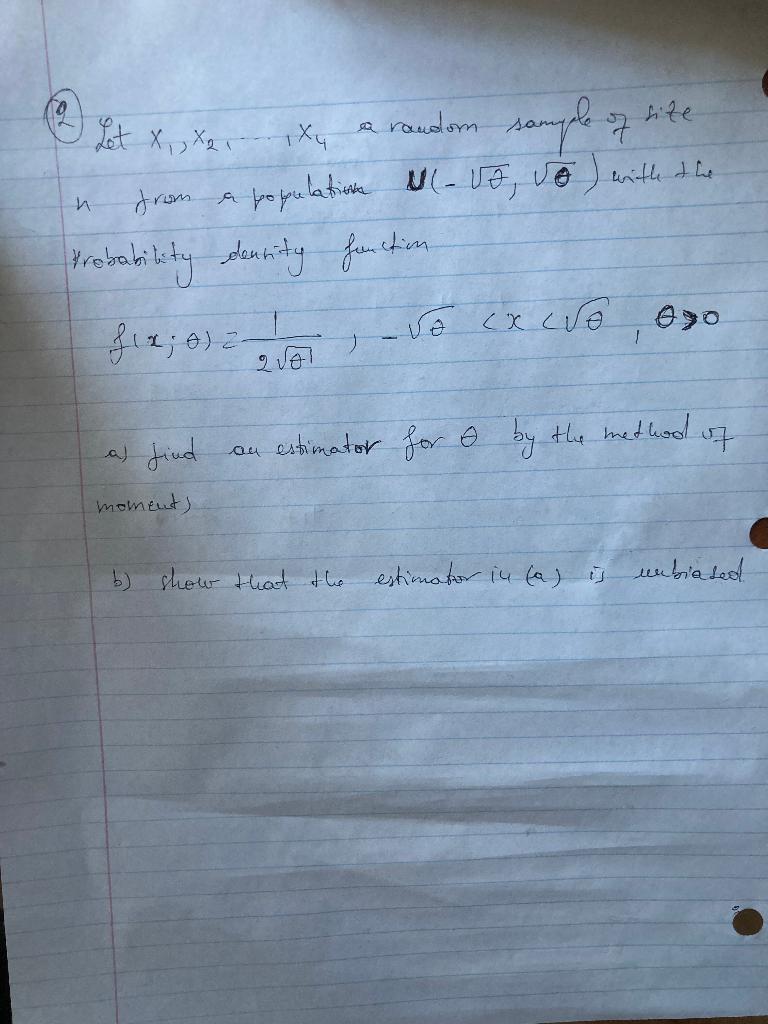 2
Let X1, X2, ...., X4 a random sample of size
n from a population U(-√θ, √θ) with the
Probability density function
f(x; θ) = 1/(2√θ) , -√θ < x < √θ , θ>0
a) find an estimator for θ by the method of
moments
b) show that the estimator in (a) is unbiased